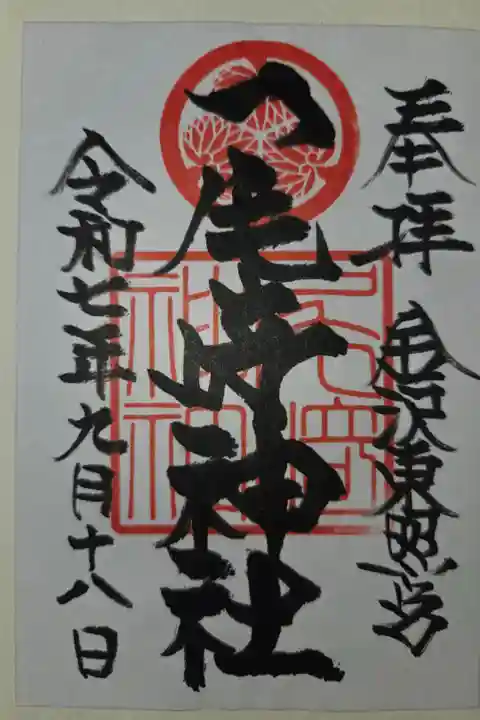 奉拝 金沢東照宮
尾﨑神社
令和七年九月十八日